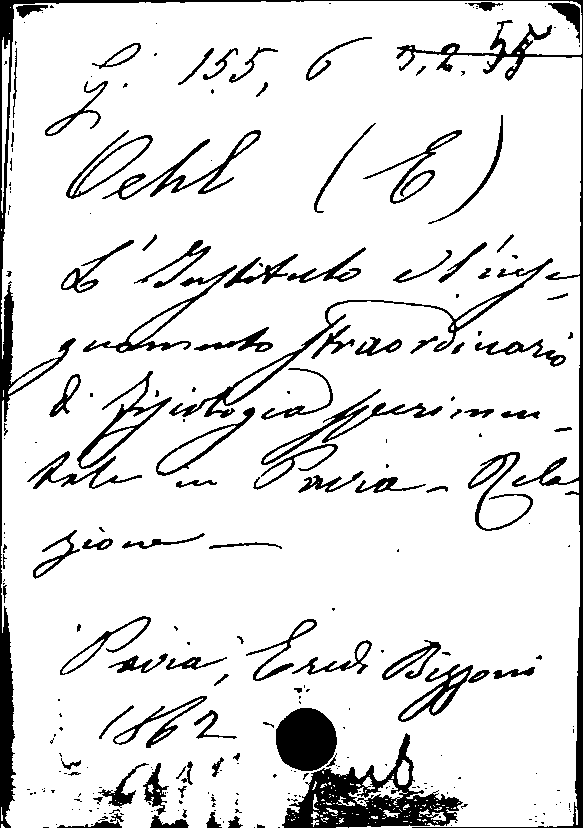 G. 155, 6 3,2.55
Oehl (E)
L'Instituto e l'inse-
gnamento straordinario
di fisiologia sperimen-
tale in Pavia - Rela-
zione —
Pavia, Eredi Bizzoni
1862